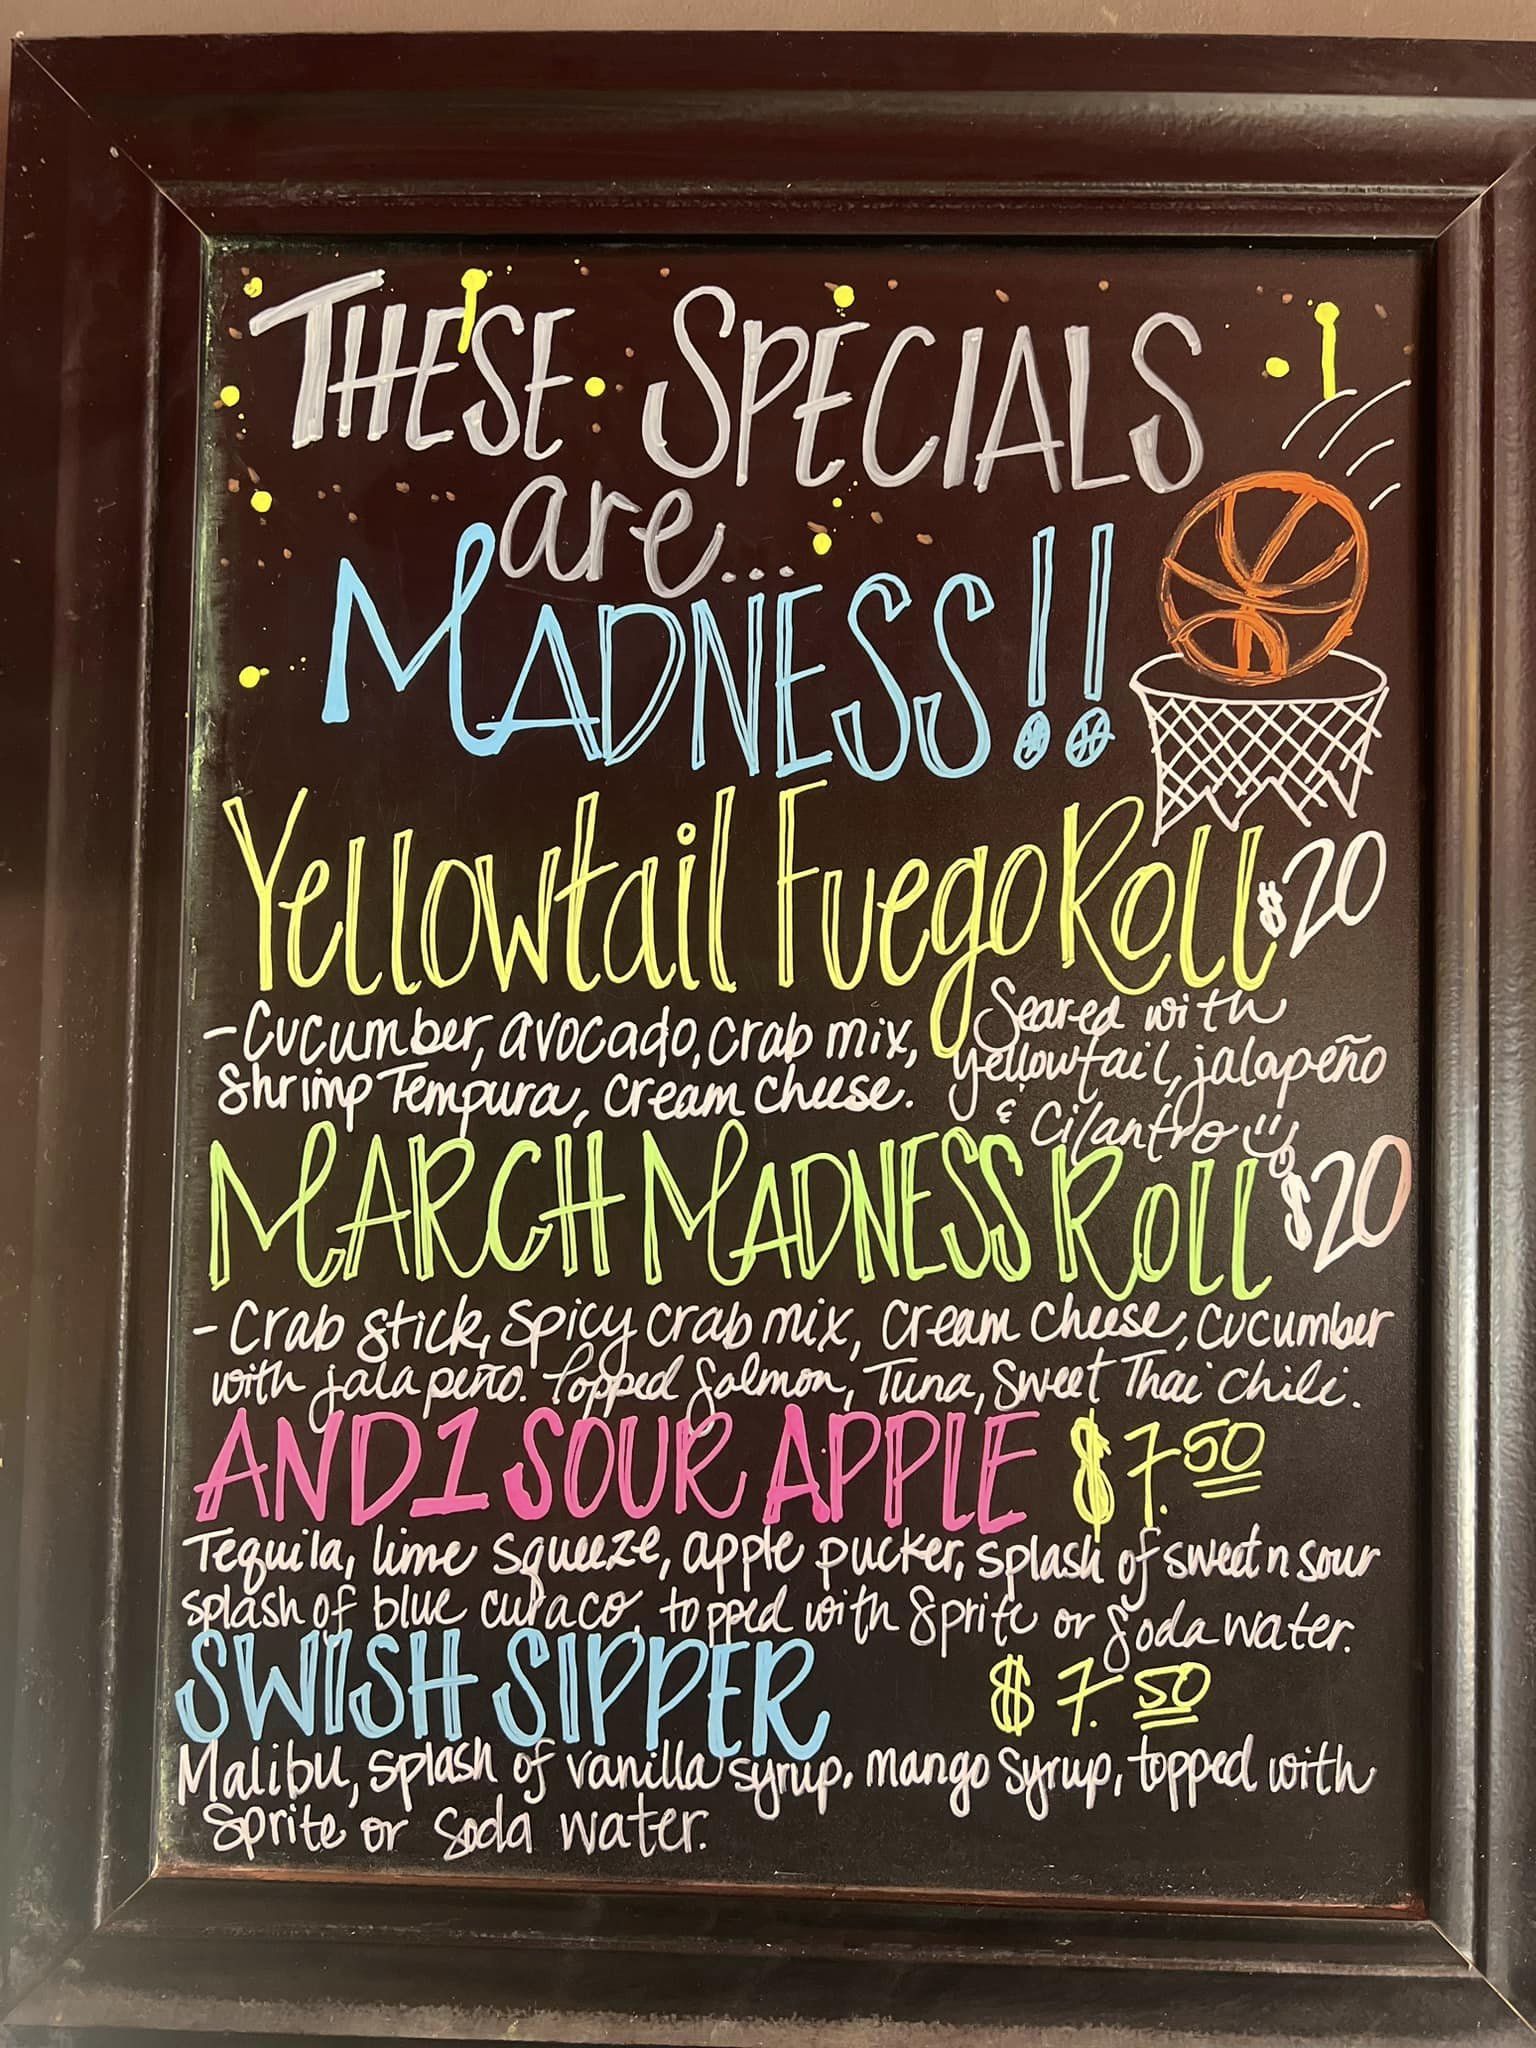 THESE SPECIALS
are...
MADNESS!!
Yellowtail Fuego Roll $20
- Cucumber, avocado, crab mix, Seared with
Shrimp Tempura, cream cheese. yellowtail, jalapeño
& cilantro
MARCH MADNESS Roll $20
- Crab stick, spicy crab mix, cream cheese, cucumber
with jalapeño. Topped Salmon, Tuna, Sweet Thai chili.
AND1 SOUR APPLE $7.50
Tequila, lime squeeze, apple pucker, splash of sweet n sour
splash of blue curaco, topped with Sprite or Soda water.
SWISH SIPPER $7.50
Malibu, splash of vanilla syrup. mango syrup, topped with
Sprite or Soda water.